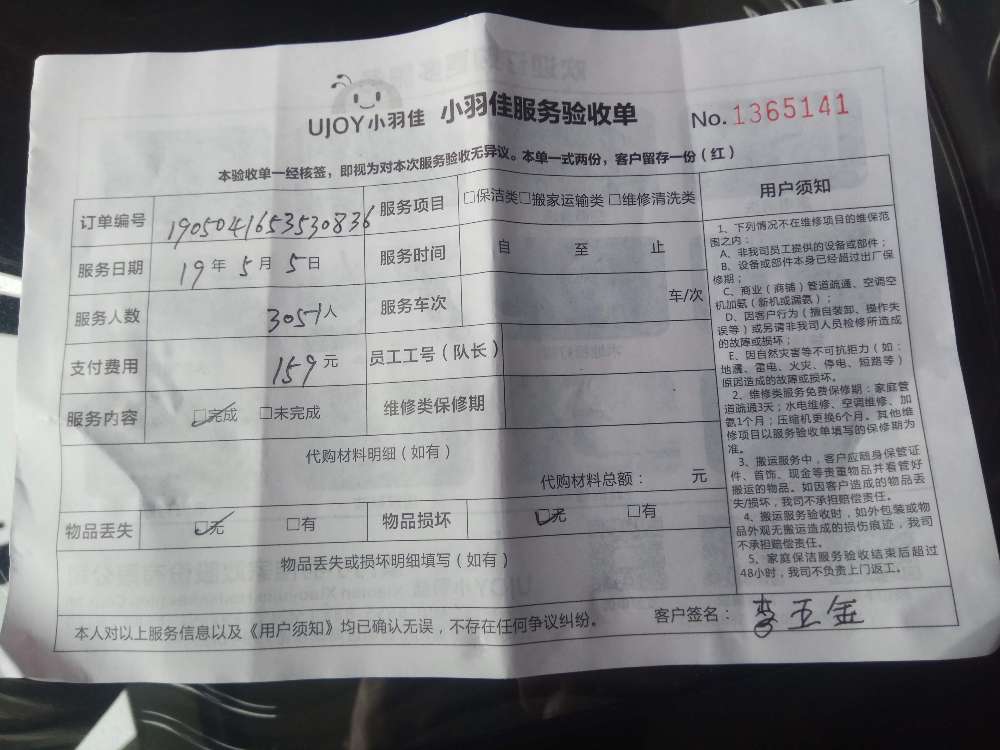 UJOY小羽佳 小羽佳服务验收单 No.1365141
本验收单一经核签，即视为对本次服务验收无异议。本单一式两份，客户留存一份（红）
订单编号 190504165353830836 服务项目 □保洁类□搬家运输类 □维修清洗类
服务日期 19年5月5日 服务时间 自 至 止
服务人数 3051人 服务车次 车/次
支付费用 159元 员工工号（队长）
服务内容 ☑完成 □未完成 维修类保修期
代购材料明细（如有）
代购材料总额： 元
物品丢失 ☑无 □有 物品损坏 ☑无 □有
物品丢失或损坏明细填写（如有）
本人对以上服务信息以及《用户须知》均已确认无误，不存在任何争议纠纷。 客户签名：李五金
用户须知
1、下列情况不在维修项目的维保范
围之内：
A、非我司员工提供的设备或部件；
B、设备或部件本身已经超过出厂保
修期；
C、商业（商铺）管道疏通、空调空
机加氨（新机或漏氨）；
D、因客户行为（擅自装卸、操作失
误等）或另请非我司人员检修所造成
的故障或损坏；
E、因自然灾害等不可抗拒力（如：
地震、雷电、火灾、停电、短路等）
原因造成的故障或损坏。
2、维修类服务免费保修期：家庭管
道疏通3天；水电维修、空调维修、加
氨1个月；压缩机更换6个月。其他维
修项目以服务验收单填写的保修期为
准。
3、搬运服务中，客户应随身保管证
件、首饰、现金等贵重物品并看管好
搬运的物品。如因客户造成的物品丢
失/损坏，我司不承担赔偿责任。
4、搬运服务验收时，如外包装或物
品外观无搬运造成的损伤痕迹，我司
不承担赔偿责任。
5、家庭保洁服务验收结束后超过
48小时，我司不负责上门返工。